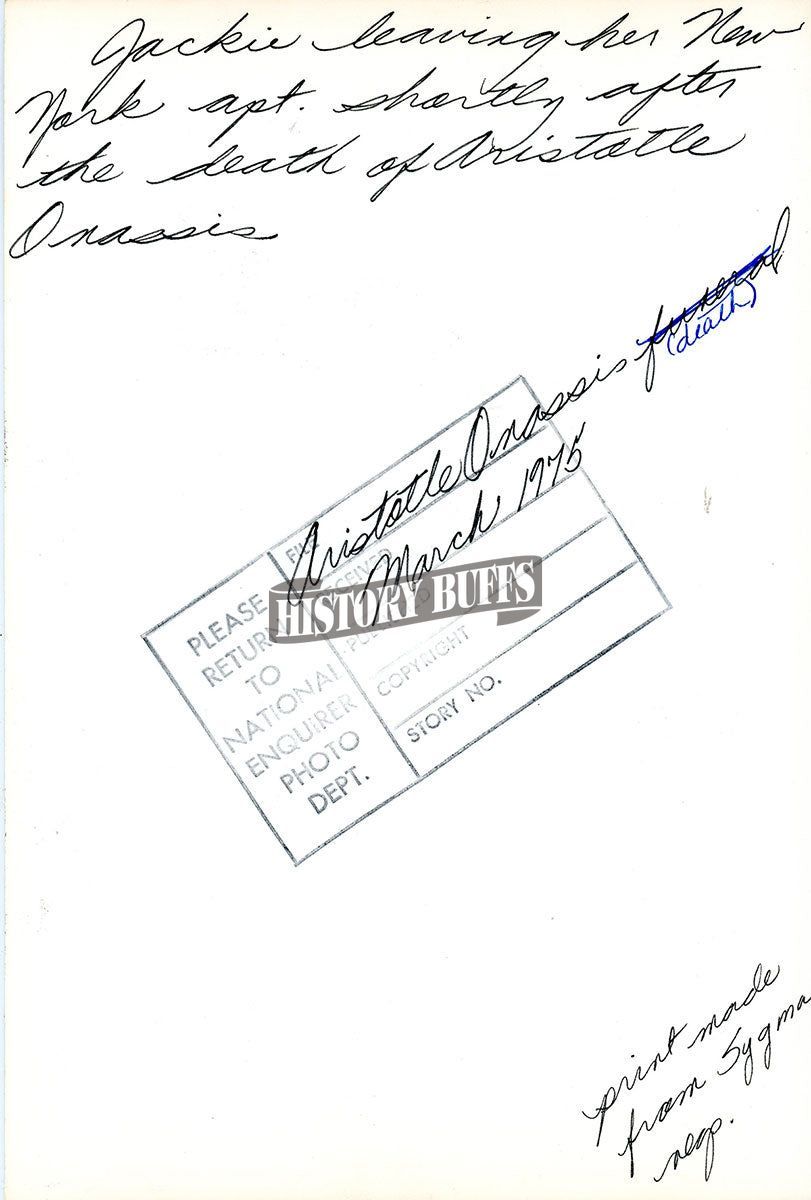 Jackie leaving her New
York apt. shortly after
the death of Aristotle
Onassis
Aristotle Onassis funeral
(death)
March 1975
PLEASE
RETURN
TO
NATIONAL
ENQUIRER
PHOTO
DEPT.
FILE
RECEIVED
PUBLISHED
COPYRIGHT
STORY NO.
HISTORY BUFFS
print made
from Sygma
neg.